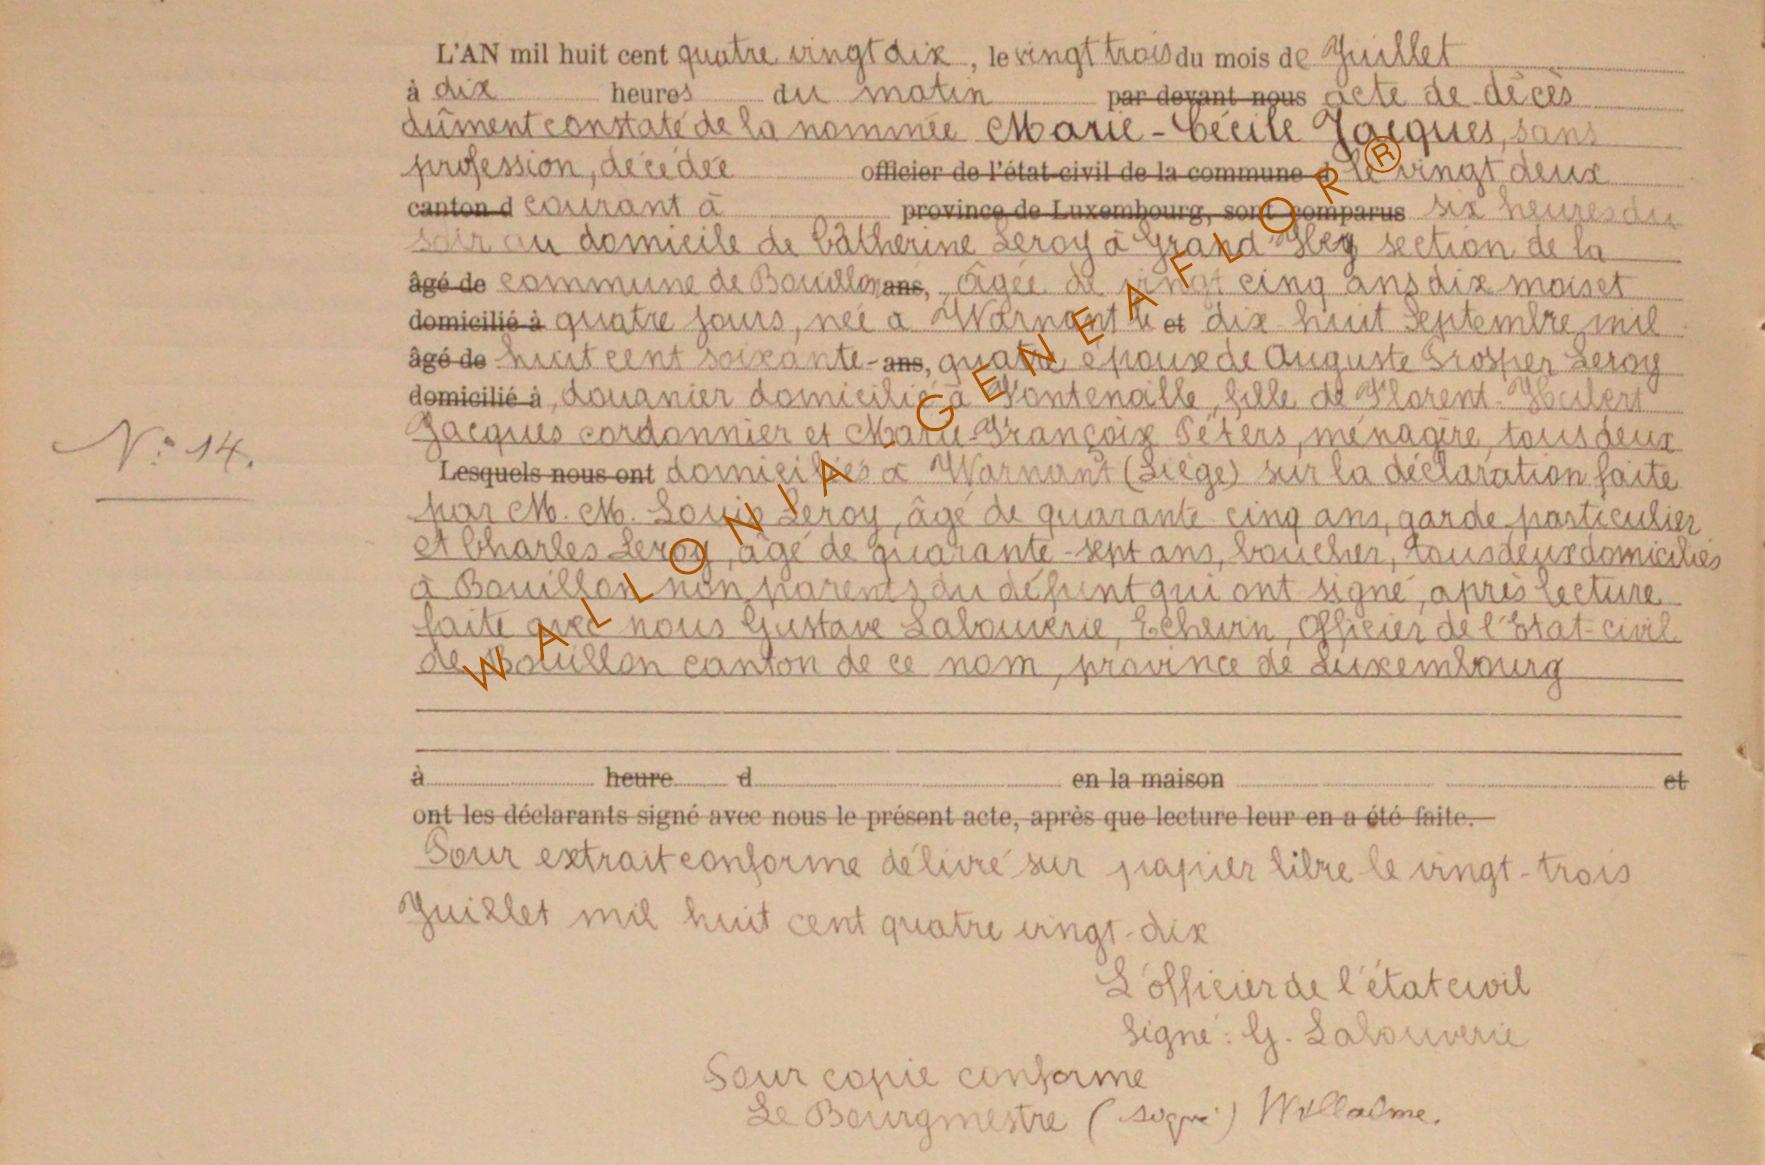 L'AN mil huit cent quatre vingt dix, le vingt trois du mois de Juillet
à dix heures du matin par devant nous acte de décès
dûment constaté de la nommée Marie-Cécile Jacques, sans
profession, décédée officier de l'état-civil de la commune d le vingt deux
canton d courant à province de Luxembourg, sont comparus six heures du
soir au domicile de Câtherine Leroy à Grand Hez section de la
âgé de commune de Bouillon ans, âgée de vingt cinq ans dix mois et
domicilié à quatre jours, née à Warnant le et dix huit Septembre mil
âgé de huit cent soixante- ans, quatre épouse de Auguste Prosper Leroy
domicilié à, douanier domicilié à Fontenaille, fille de Florent-Hubert
Jacques cordonnier et Marie-Françoix Péters, ménagère, tous deux
N° 14.
Lesquels nous ont domiciliés à Warnant (Liège) sur la déclaration faite
par M. M. Louis Leroy, âgé de quarante cinq ans, garde particulier
et Charles Leroy, âgé de quarante-sept ans, boucher, tous deux domiciliés
à Bouillon non parents du défunt qui ont signé, après lecture
faite avec nous Gustave Labouverie, Echevin, Officier de l'Etat-civil
de Bouillon canton de ce nom, province de Luxembourg
à heure d en la maison et
ont les déclarants signé avec nous le présent acte, après que lecture leur en a été faite.
Pour extrait conforme délivré sur papier libre le vingt-trois
Juillet mil huit cent quatre vingt-dix
L'officier de l'état civil
Signé: G. Labouverie
Pour copie conforme
Le Bourgmestre (signé) Willaime.
WALLONIA - GENEAFLOR ®